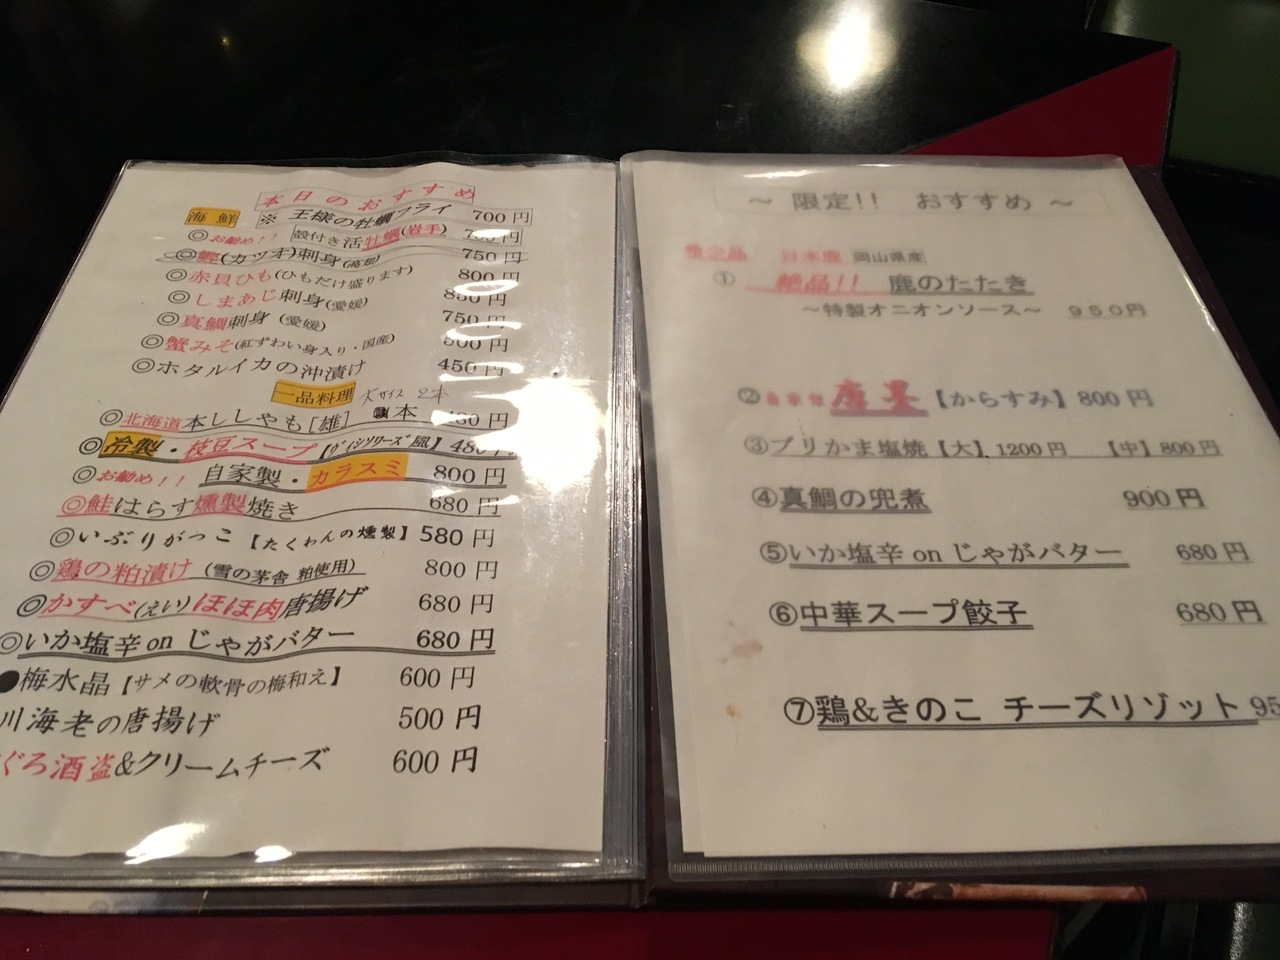 本日のおすすめ
海鮮 ※ 王様の牡蠣フライ 700円
◎お勧め！！ 殻付き活牡蠣(岩手) 円
◎鰹(カツオ)刺身(高知) 750円
◎赤貝ひも(ひもだけ盛ります) 800円
◎しまあじ刺身(愛媛) 850円
◎真鯛刺身 (愛媛) 750円
◎蟹みそ(紅ずわい身入り・国産) 500円
◎ホタルイカの沖漬け 450円
一品料理 大サイズ 2本
◎北海道本ししゃも[雄] 本 円
◎冷製・枝豆スープ【ヴィシソワーズ風】 480円
◎お勧め！！ 自家製・カラスミ 800円
◎鮭はらす燻製焼き 680円
◎いぶりがっこ【たくわんの燻製】 580円
◎鶏の粕漬け (雪の茅舎 粕使用) 800円
◎かすべ(えい)ほほ肉唐揚げ 680円
◎いか塩辛 on じゃがバター 680円
●梅水晶【サメの軟骨の梅和え】 600円
川海老の唐揚げ 500円
ぐろ酒盗&クリームチーズ 600円
～ 限定!! おすすめ ～
限定品 日本鹿 岡山県産
① 絶品!! 鹿のたたき
～特製オニオンソース～ 950円
②自家製 唐墨【からすみ】800円
③ブリかま塩焼【大】1200円 【中】800円
④真鯛の兜煮 900円
⑤いか塩辛 on じゃがバター 680円
⑥中華スープ餃子 680円
⑦鶏&きのこ チーズリゾット 95